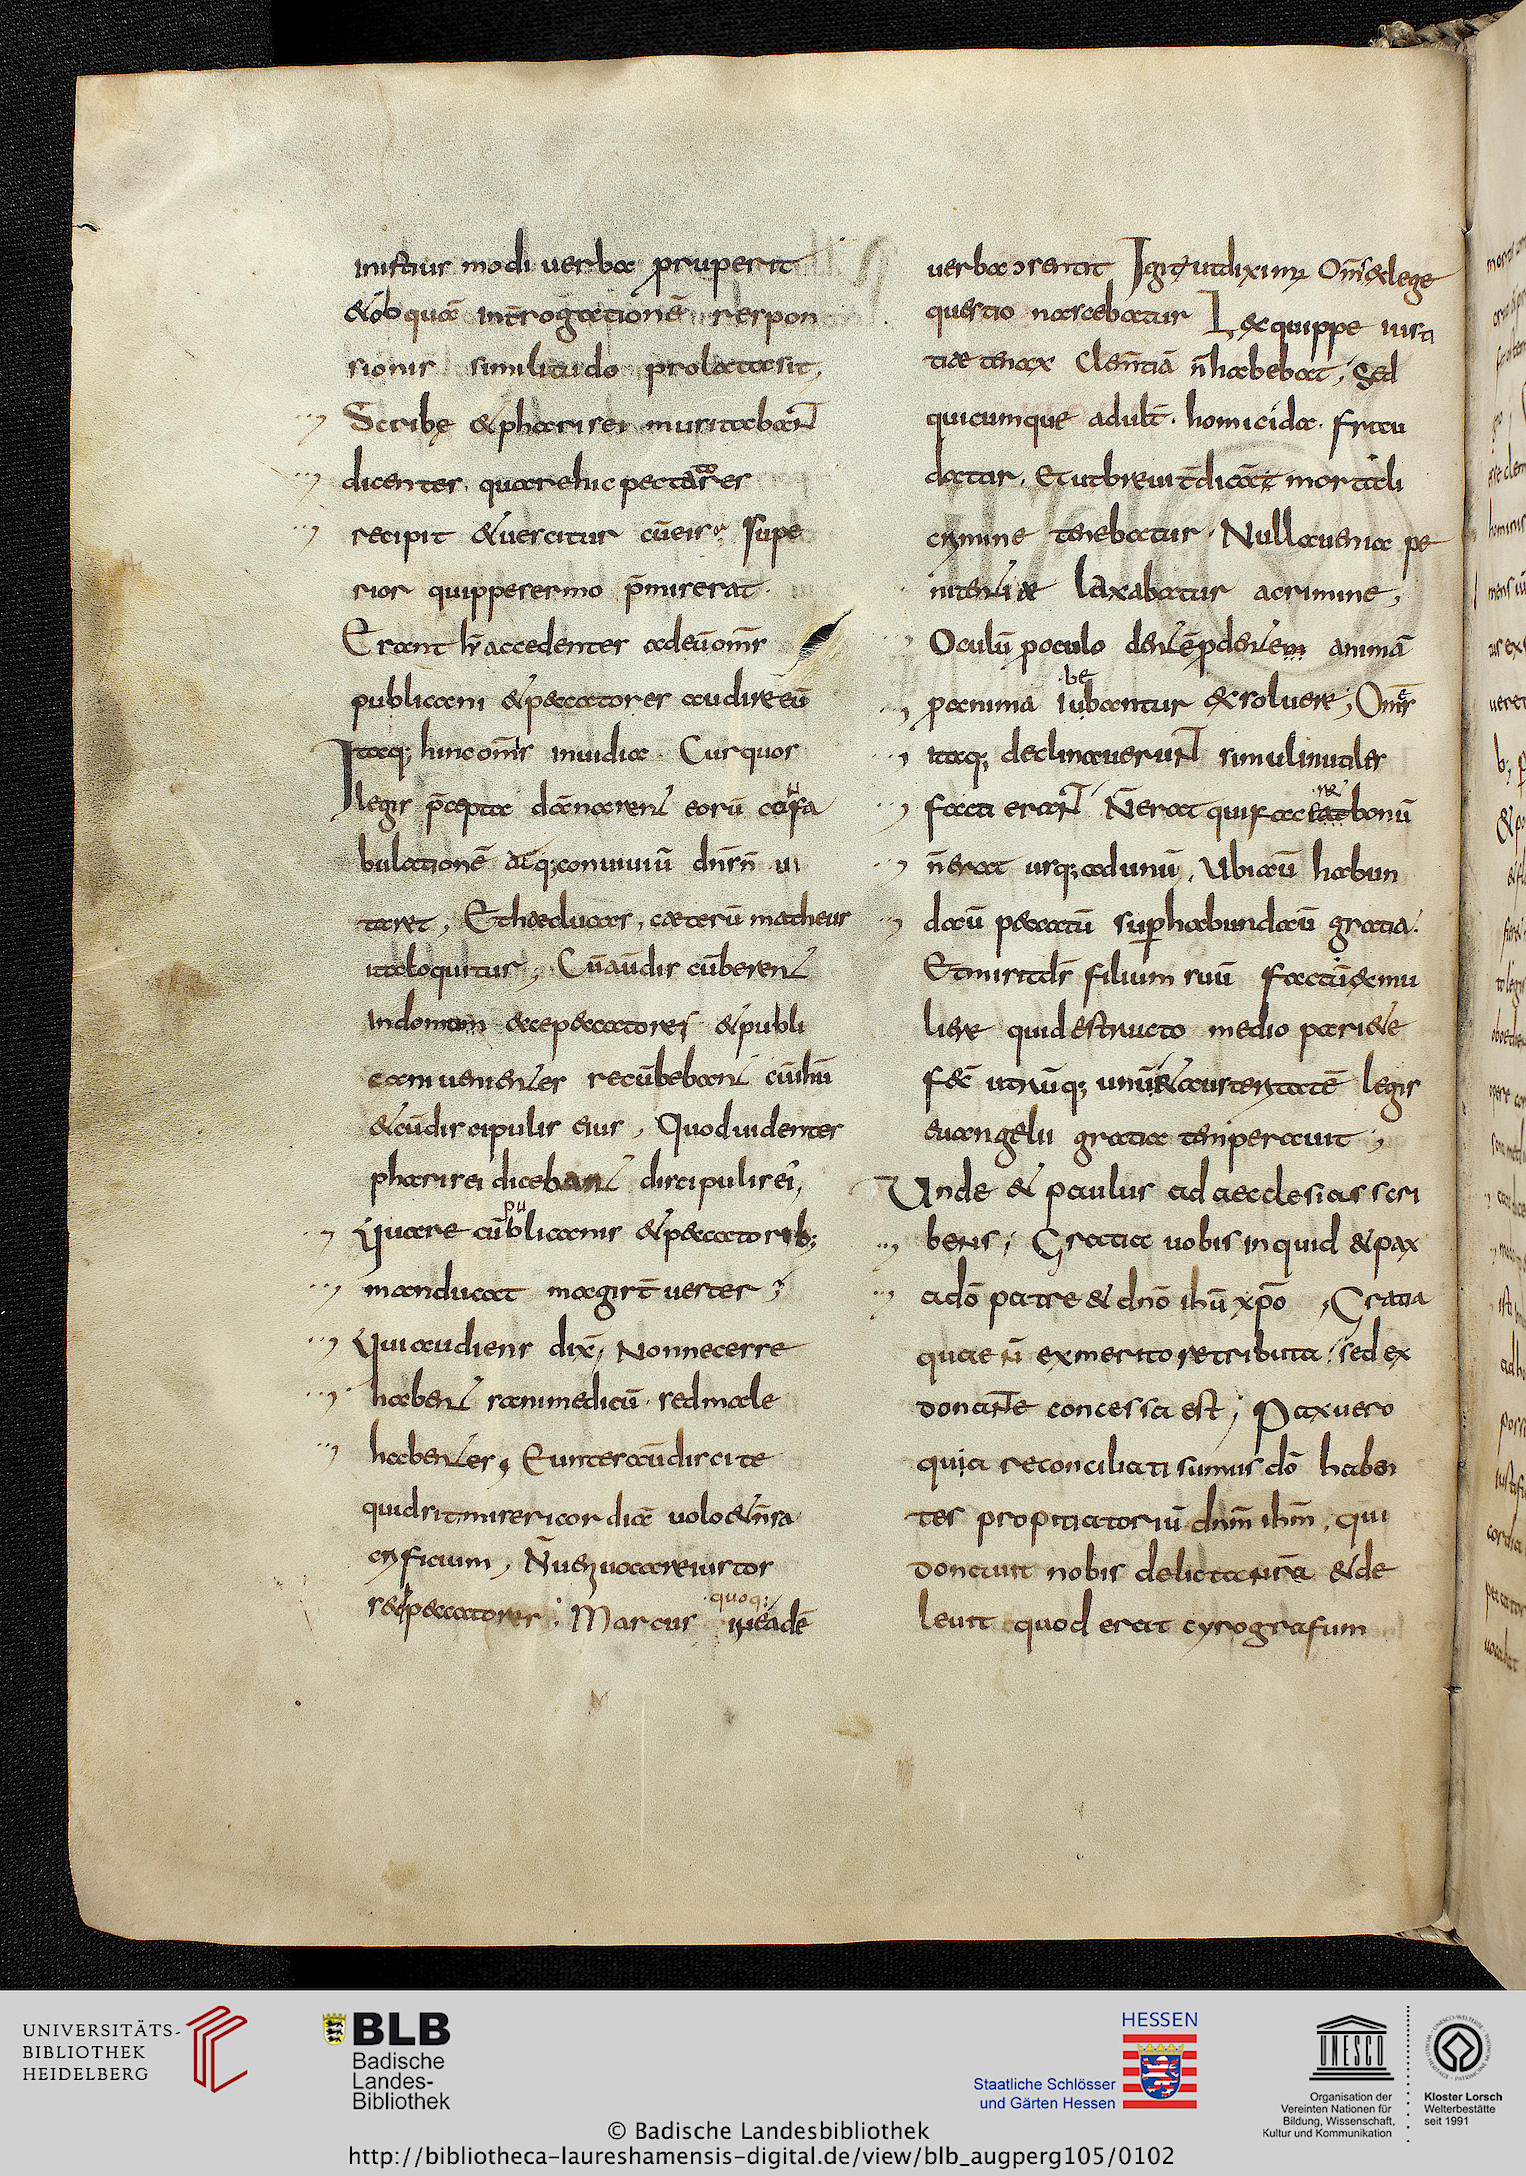 inistius modi uerba pruperit
&ob quā introgationē respon
sionis similitudo prolata sit,
Scribę & pharisei musitabant
dicentes. quare hic peccatores
recipit & uescitur cū eis. Supe
rior quippe sermo p̄miserat.
Erant h̄ accedentes ad eū om̄s
publicani & peccatores audire eū
Itaq; hinc om̄s inuidia. Cur quos
legis p̄cepta dānarent eorū cōfa
bulationē atq; conuiuiū dn̄s n̄ ui
taret, Et haec lucas, cæterū matheus
ita loquitur, Cū audis cūberent
in domum ecce peccatores & publi
cani uenientes recūbebant cū ihū
& cū discipulis eius, Quod uidentes
pharisei dicebant discipulis ei',
Quare cū publicanis & peccatorib;
manducat magist̄ uester;
Qui audiens dix̄, Non necesse
habent sani medicū. sed male
habentes, Euntes aūt discite
quid sit misericordiā uolo & n̄ sa
crificium, N̄ ueni uocare iustos
sed peccatores; Marcus quoq; in eadē
uerba c̄sentit Igit͛ ut diximus Om̄s ex lege
questio nascebatur Lex quippe iusti
tiae tenax Clem̄tiā n̄ habebat, Sed
quicumque adult̄. homicida. frau
dator. Et ut breuit̄ dicā & mortali
crimine tenebatur. Nulla uenia pe
nitentiæ laxabatur a crimine,
Oculū p oculo dentē p dentem animā
p anima iubebantur exsoluere; Om̄es
itaq; declinauerunt simul inutiles
facti erant N̄ erat qui faceret bonū
n̄ erat usq; ad unū, Ubi aū habun
daū peccatū sup habundaū gratia.
Et misit ds̄ filium suū factū ex mu
liere qui destructo medio pariete
fec̄ utrūq; unū & austeritatē legis
euangelii gratia temperauit;
Unde & paulus ad aecclesias scri
bens; Gratia uobis inquid & pax
a dō patre & dn̄o ihū xp̄o, Gratia
quae n̄ ex merito retributa; sed ex
donante concessa est; Pax uero
quia reconciliati sumus dō haben
tes propitiatoriū dn̄m ihm̄, qui
donauit nobis delicta nr̄a & de
leuit quod erat cyrografum
UNIVERSITÄTS-
BIBLIOTHEK
HEIDELBERG
BLB
Badische
Landes-
Bibliothek
HESSEN
Staatliche Schlösser
und Gärten Hessen
UNESCO
Organisation der
Vereinten Nationen für
Bildung, Wissenschaft,
Kultur und Kommunikation
Kloster Lorsch
Welterbestätte
seit 1991
© Badische Landesbibliothek
http://bibliotheca-laureshamensis-digital.de/view/blb_augperg105/0102